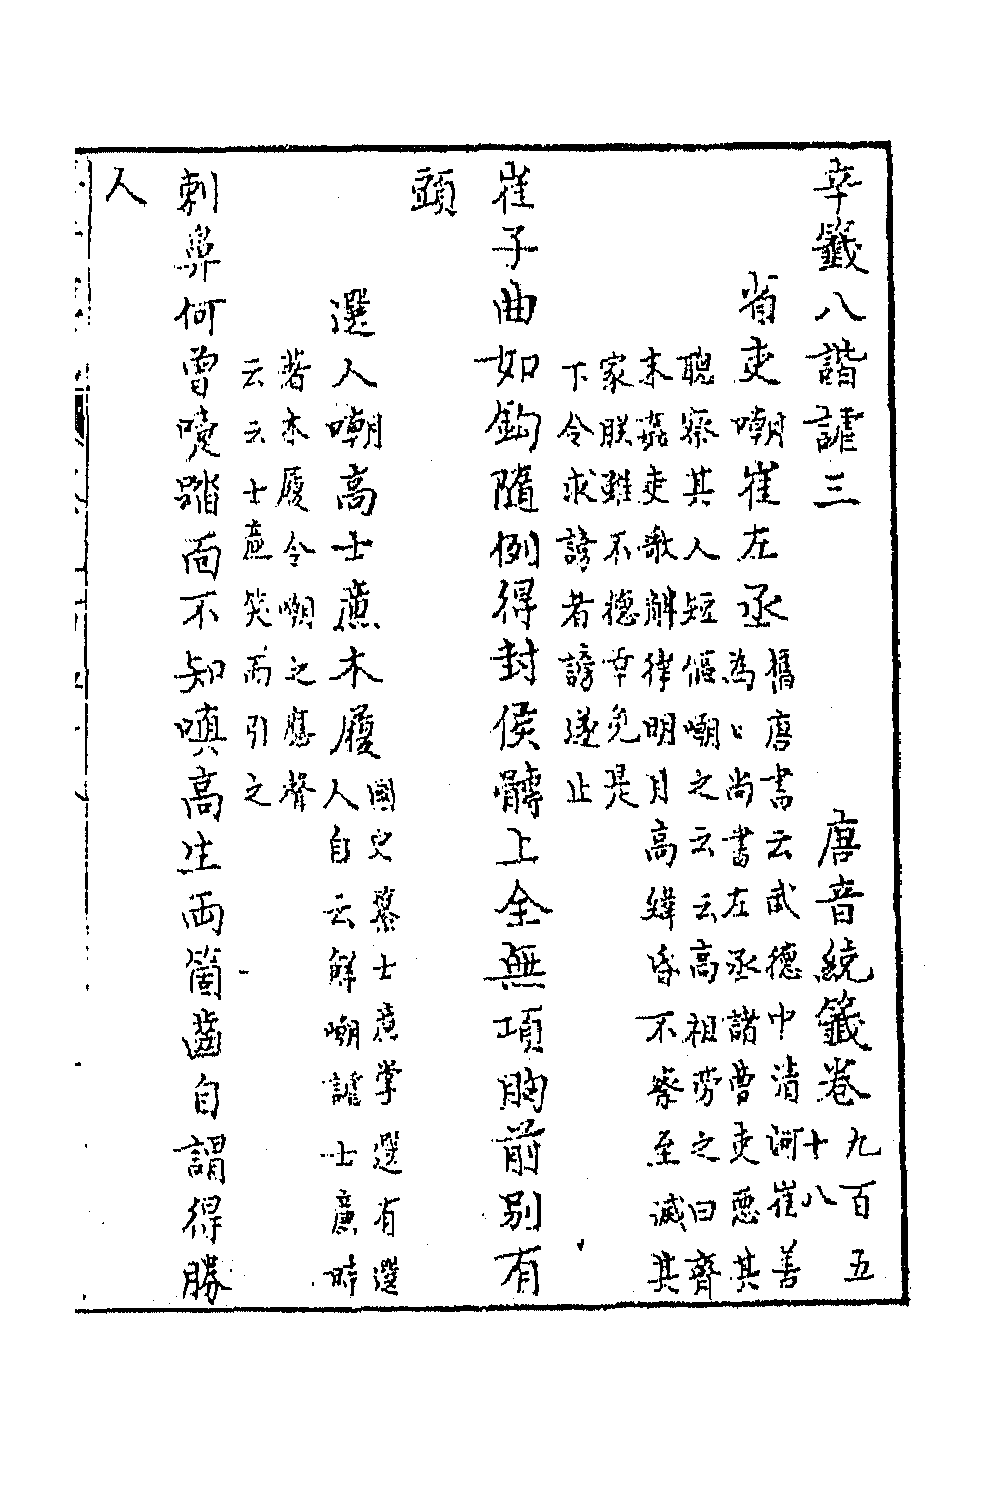 辛籤八諧謔三 唐音統籤卷九百五十八
省吏嘲崔左丞 舊唐書云武德中清河崔善
為口尚書左丞諸曹吏惡其
聰察其人短傴嘲之云云高祖勞之曰齊
末姦吏歌斛律明月高緯昏不察至滅其
家朕雖不德幸免是
下令求謗者謗遂止
崔子曲如鈎隨例得封侯髆上全無項胸前别有
頭
選人嘲高士廉木履 國史纂士廉掌選有選
人自云解嘲謔士廉時
著木履令嘲之應聲
云云士廉笑而引之
刺鼻何曾嚏踏面不知嗔高生兩箇齒自謂得勝
人